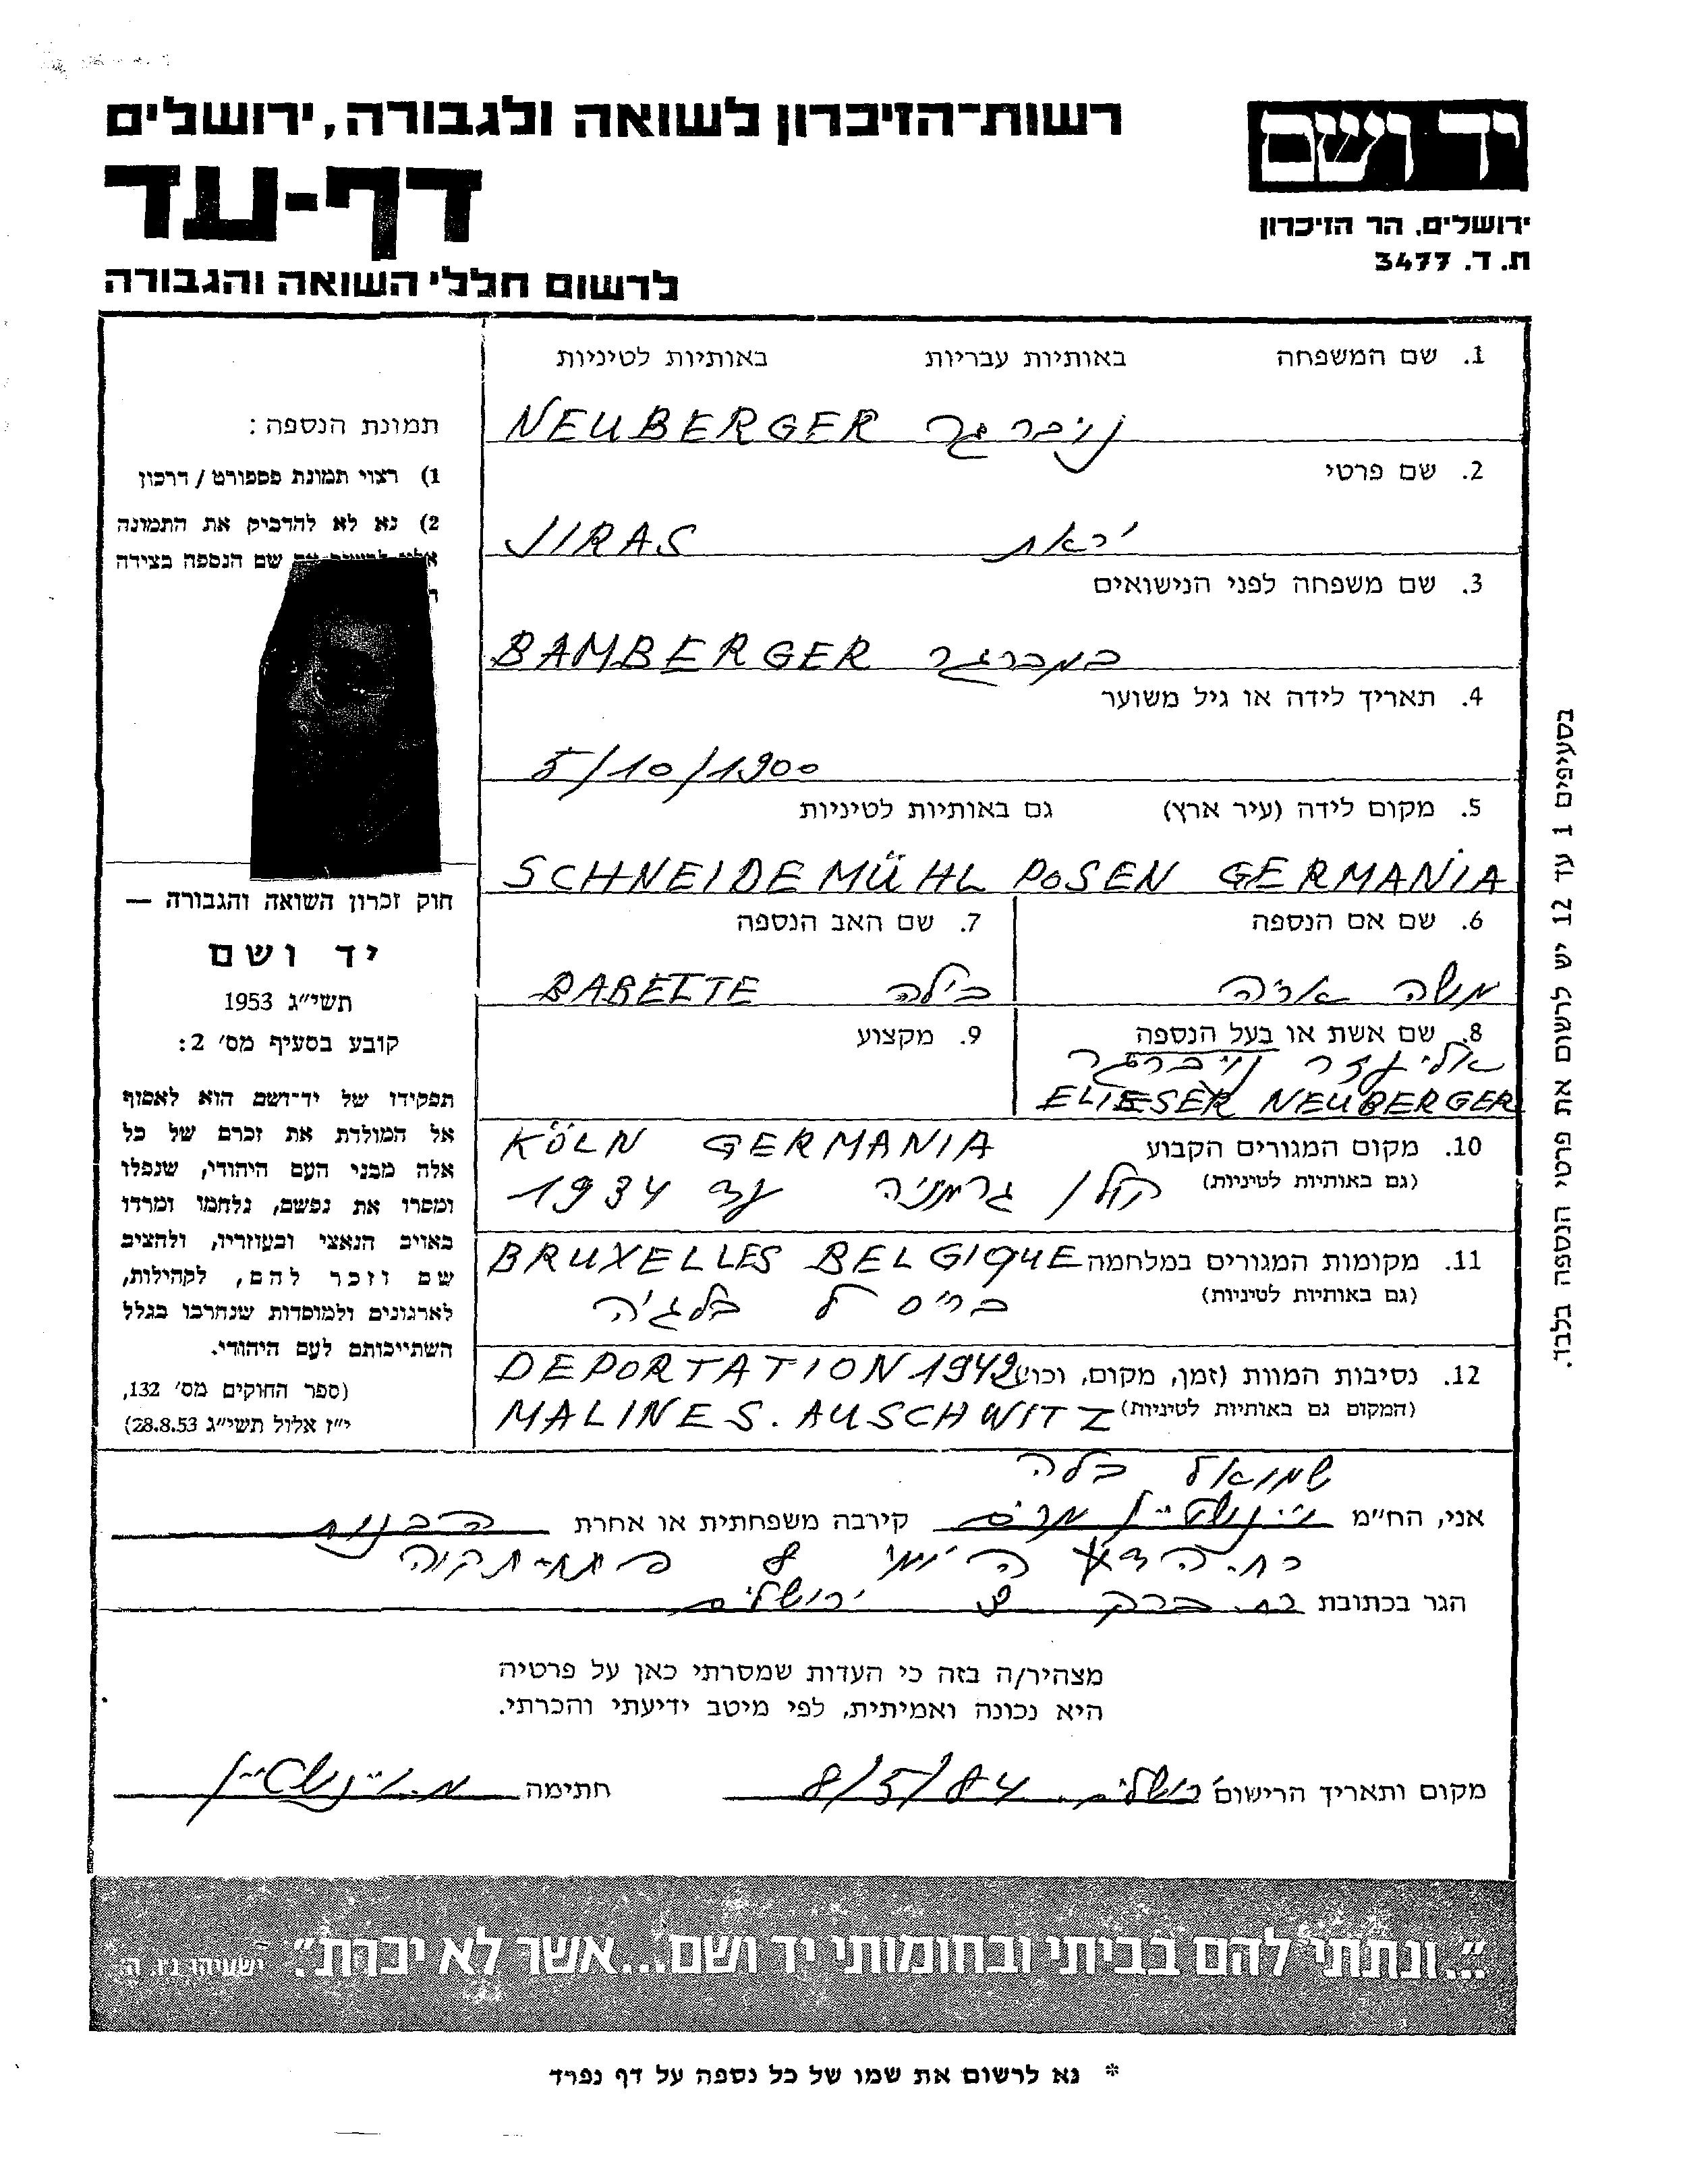 רשות-הזיכרון לשואה ולגבורה, ירושלים
דף-עד
לרשום חללי השואה והגבורה
יד ושם
ירושלים, הר הזיכרון
ת. ד. 3477
תמונת הנספה:
1) רצוי תמונת פספורט / דרכון
2) נא לא להדביק את התמונה
שם הנספה בצידה
חוק זכרון השואה והגבורה —
יד ושם
תשי״ג 1953
קובע בסעיף מס׳ 2:
תפקידו של יד-ושם הוא לאסוף
אל המולדת את זכרם של כל
אלה מבני העם היהודי, שנפלו
ומסרו את נפשם, נלחמו ומרדו
באויב הנאצי ובעוזריו, ולהציב
שם וזכר להם, לקהילות,
לארגונים ולמוסדות שנחרבו בגלל
השתייכותם לעם היהודי.
(ספר החוקים מס׳ 132,
י״ז אלול תשי״ג 28.8.53)
1. שם המשפחה באותיות עבריות באותיות לטיניות
נויברגר NEUBERGER
2. שם פרטי
יראת JIRAS
3. שם משפחה לפני הנישואים
במברגר BAMBERGER
4. תאריך לידה או גיל משוער
5/10/1900
5. מקום לידה (עיר ארץ) גם באותיות לטיניות
SCHNEIDEMÜHL POSEN GERMANIA
6. שם אם הנספה 7. שם האב הנספה
משה אריה בילה BABETTE
8. שם אשת או בעל הנספה 9. מקצוע
אליעזר נויברגר
ELIESER NEUBERGER
10. מקום המגורים הקבוע KÖLN GERMANIA
(גם באותיות לטיניות) קלן גרמניה עד 1934
11. מקומות המגורים במלחמה BRUXELLES BELGIQUE
(גם באותיות לטיניות) בריסל בלגיה
12. נסיבות המוות (זמן, מקום, וכו׳ DEPORTATION 1942
(המקום גם באותיות לטיניות) MALINES. AUSCHWITZ
שמואל בלה
אני, הח״מ ויינשטיין מרים קירבה משפחתית או אחרת הבנות
רח. ה פתח-תקוה
הגר בכתובת רח. ברק ירושלים
מצהיר/ה בזה כי העדות שמסרתי כאן על פרטיה
היא נכונה ואמיתית, לפי מיטב ידיעתי והכרתי.
מקום ותאריך הרישום 8/5/84 חתימה מ. ויינשטיין
״...ונתתי להם בביתי ובחומותי יד ושם...אשר לא יכרת״. ישעיהו נ״ו, ה׳
* נא לרשום את שמו של כל נספה על דף נפרד
בסעיפים 1 עד 12 יש לרשום את פרטי הנספה בלבד.